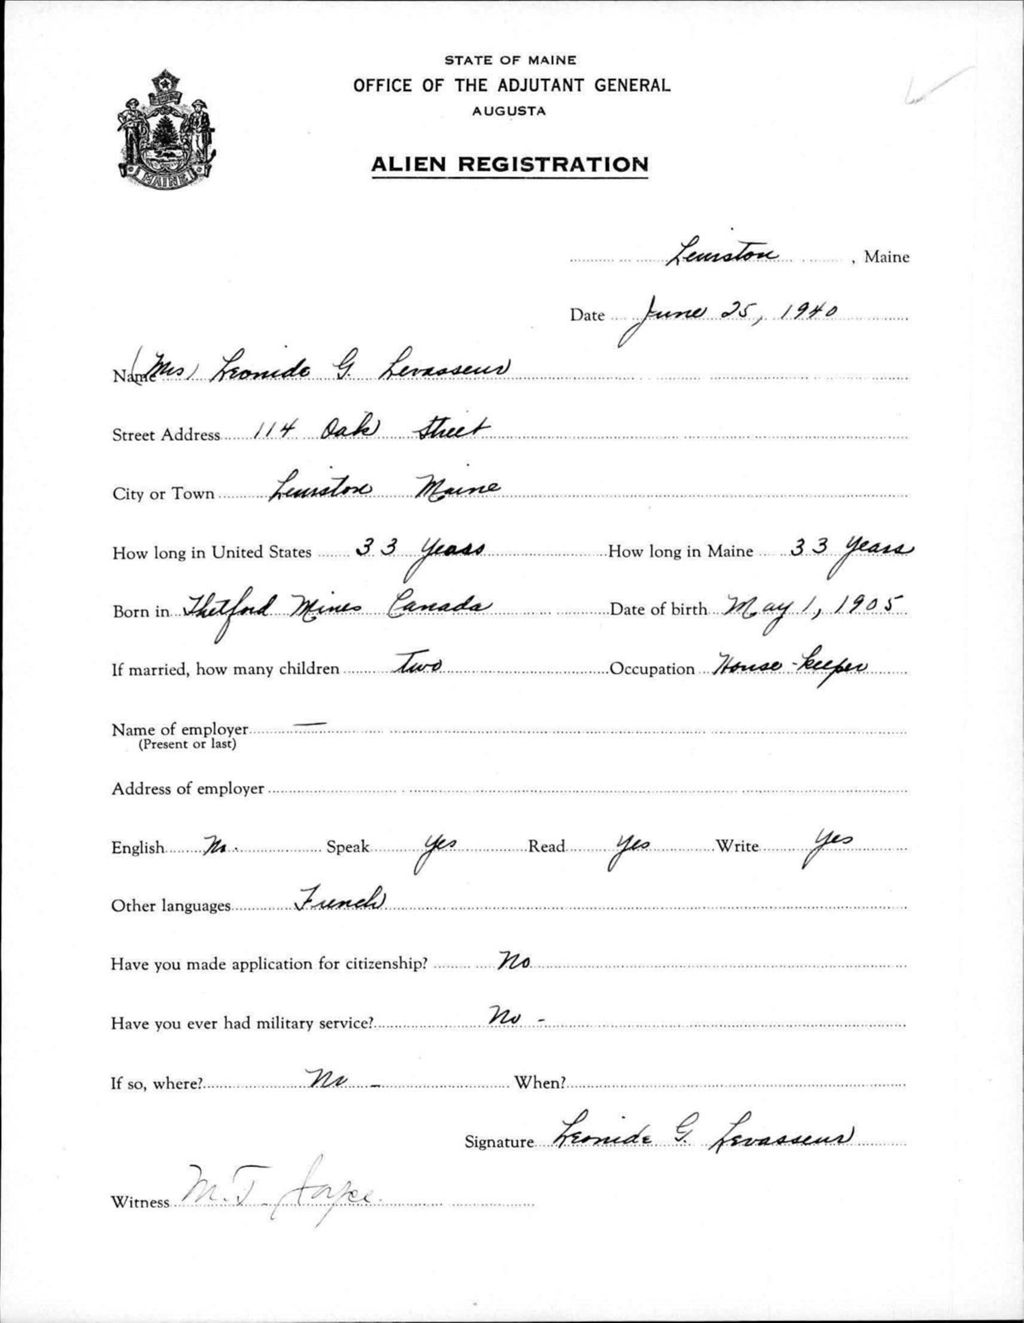 STATE OF MAINE
OFFICE OF THE ADJUTANT GENERAL
AUGUSTA
ALIEN REGISTRATION
MAINE
Lewiston, Maine
Date June 25, 1940
Name (Mrs) Leonide G. Levasseur
Street Address 114 Oak Street
City or Town Lewiston Maine
How long in United States 33 years How long in Maine 33 years
Born in Thetford Mines Canada Date of birth May 1, 1905
If married, how many children Two Occupation House-keeper
Name of employer —
(Present or last)
Address of employer
English No. Speak Yes Read Yes Write Yes
Other languages French
Have you made application for citizenship? No
Have you ever had military service? No -
If so, where? No - When?
Signature Leonide G. Levasseur
Witness M. T.